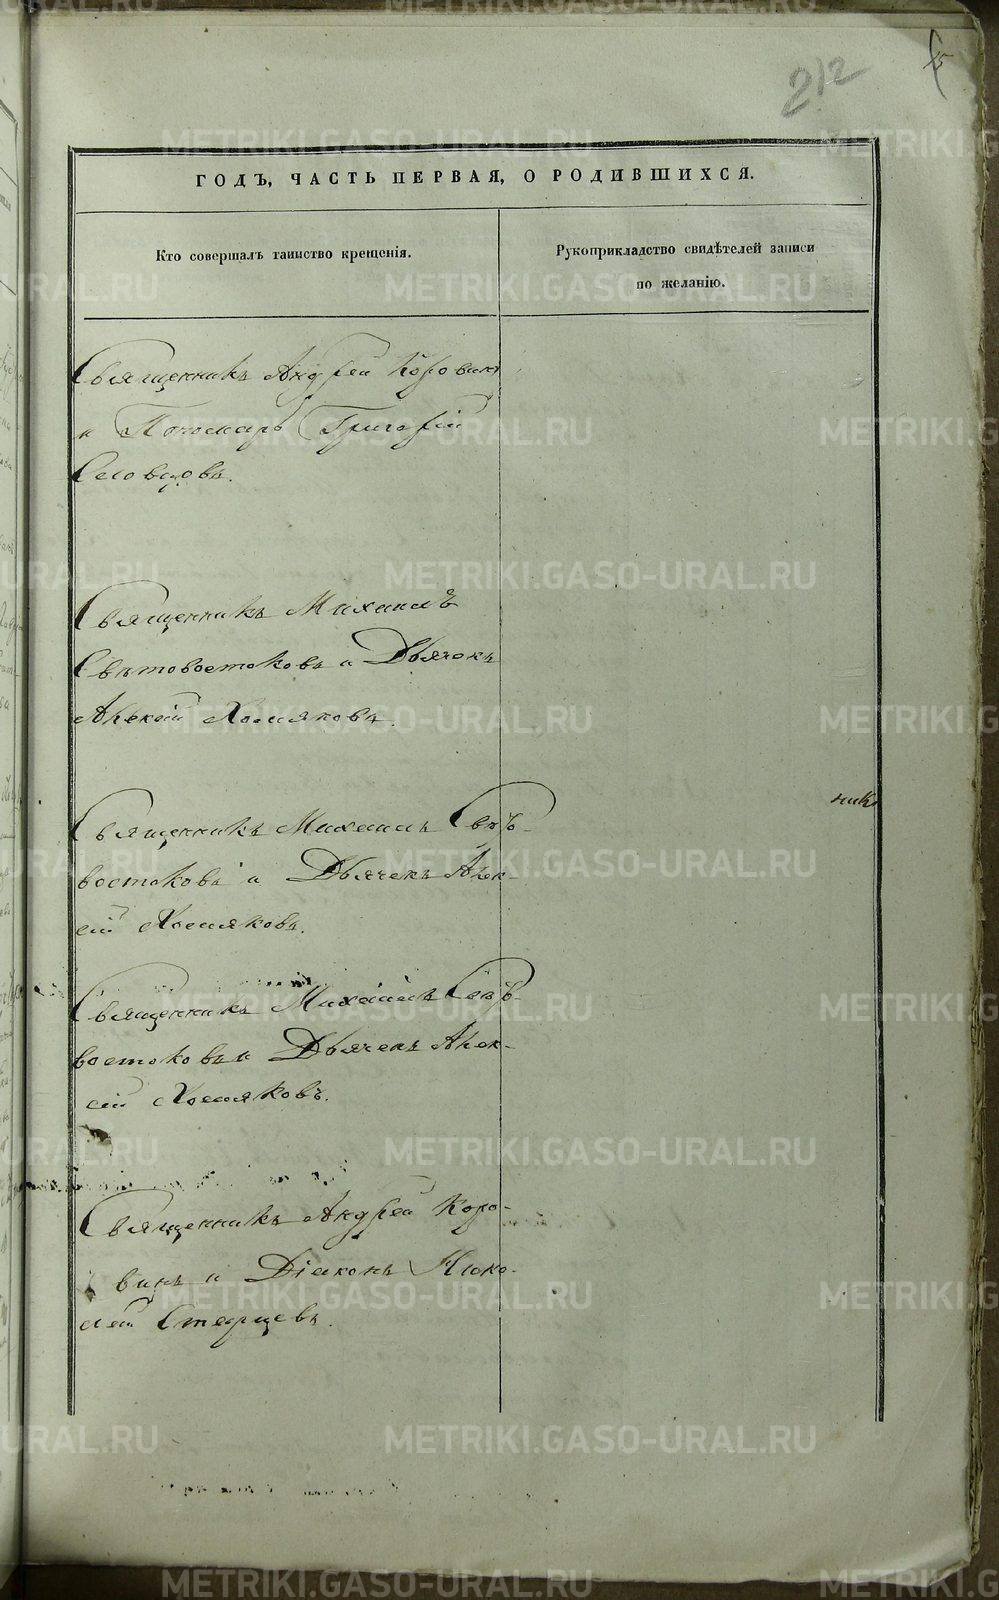 212
15
ГОДЪ, ЧАСТЬ ПЕРВАЯ, О РОДИВШИХСЯ.
Кто совершалъ таинство крещенія.
Рукоприкладство свидѣтелей записи
по желанію.
Священникъ Андрей Коровинъ
и Пономарь Григорій
Словцовъ.
Священникъ Михаилъ
Свѣтовостоковъ и Дьячекъ
Алексѣй Хомяковъ.
Священникъ Михаилъ Свѣто-
востоковъ и Дьячекъ Алек-
сій Хомяковъ.
Священникъ Михаилъ Свѣто-
востоковъ и Дьячекъ Алек-
сій Хомяковъ.
Священникъ Андрей Коро-
винъ и Діаконъ Нико-
лай Старцевъ.
METRIKI.GASO-URAL.RU